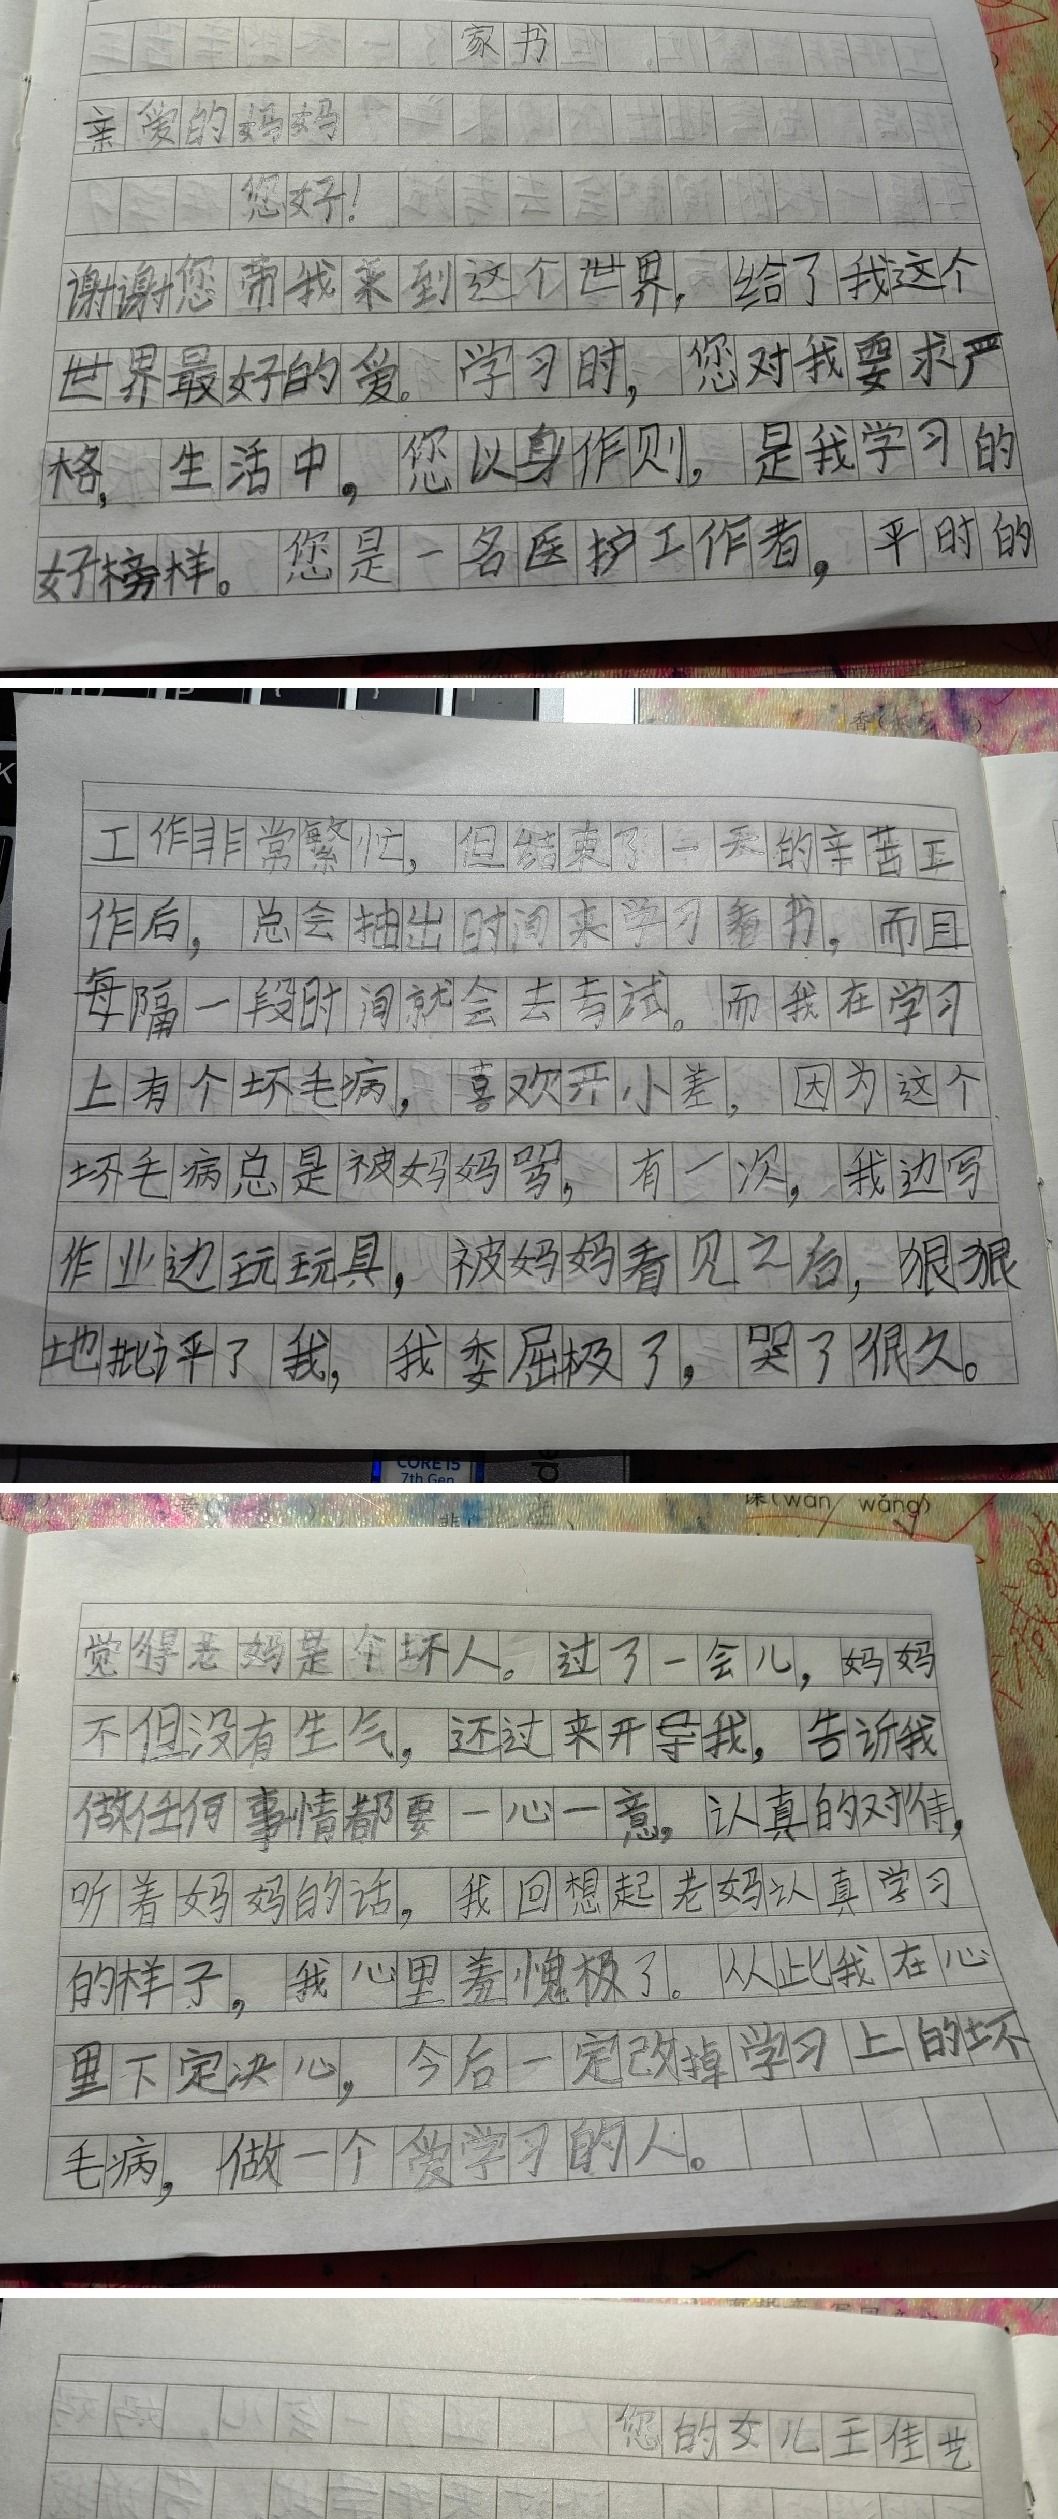 家书
亲爱的妈妈
您好！
谢谢您带我来到这个世界，给了我这个
世界最好的爱。学习时，您对我要求严
格，生活中，您以身作则，是我学习的
好榜样。您是一名医护工作者，平时的
工作非常繁忙，但结束了一天的辛苦工
作后，总会抽出时间来学习看书，而且
每隔一段时间就会去考试。而我在学习
上有个坏毛病，喜欢开小差，因为这个
坏毛病总是被妈妈骂，有一次，我边写
作业边玩玩具，被妈妈看见之后，狠狠
地批评了我，我委屈极了，哭了很久。
CORE i5
7th Gen
课(wàn wǎng)
觉得老妈是个坏人。过了一会儿，妈妈
不但没有生气，还过来开导我，告诉我
做任何事情都要一心一意，认真的对待，
听着妈妈的话，我回想起老妈认真学习
的样子，我心里羞愧极了。从此我在心
里下定决心，今后一定改掉学习上的坏
毛病，做一个爱学习的人。
您的女儿王佳艺